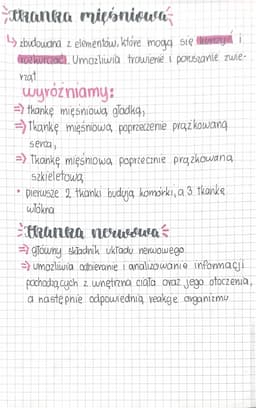 tkanka mięśniowa
↳ zbudowana z elementów, które mogą się kurczyć i
rozkurczać. Umożliwia trawienie i poruszanie zwie-
rząt
wyróżniamy:
⇒ tkankę mięśniową gładką,
⇒ Tkankę mięśniową poprzecznie prążkowaną
serca,
⇒ Tkankę mięśniową poprzecznie prążkowaną
szkieletową
• pierwsze 2 tkanki budują komórki, a 3 tkankę
włókna
tkanka nerwowa
⇒ główny składnik układu nerwowego
⇒ umożliwia odbieranie i analizowanie informacji
pochodzących z wnętrzna ciała oraz jego otoczenia,
a następnie odpowiednią reakcje organizmu